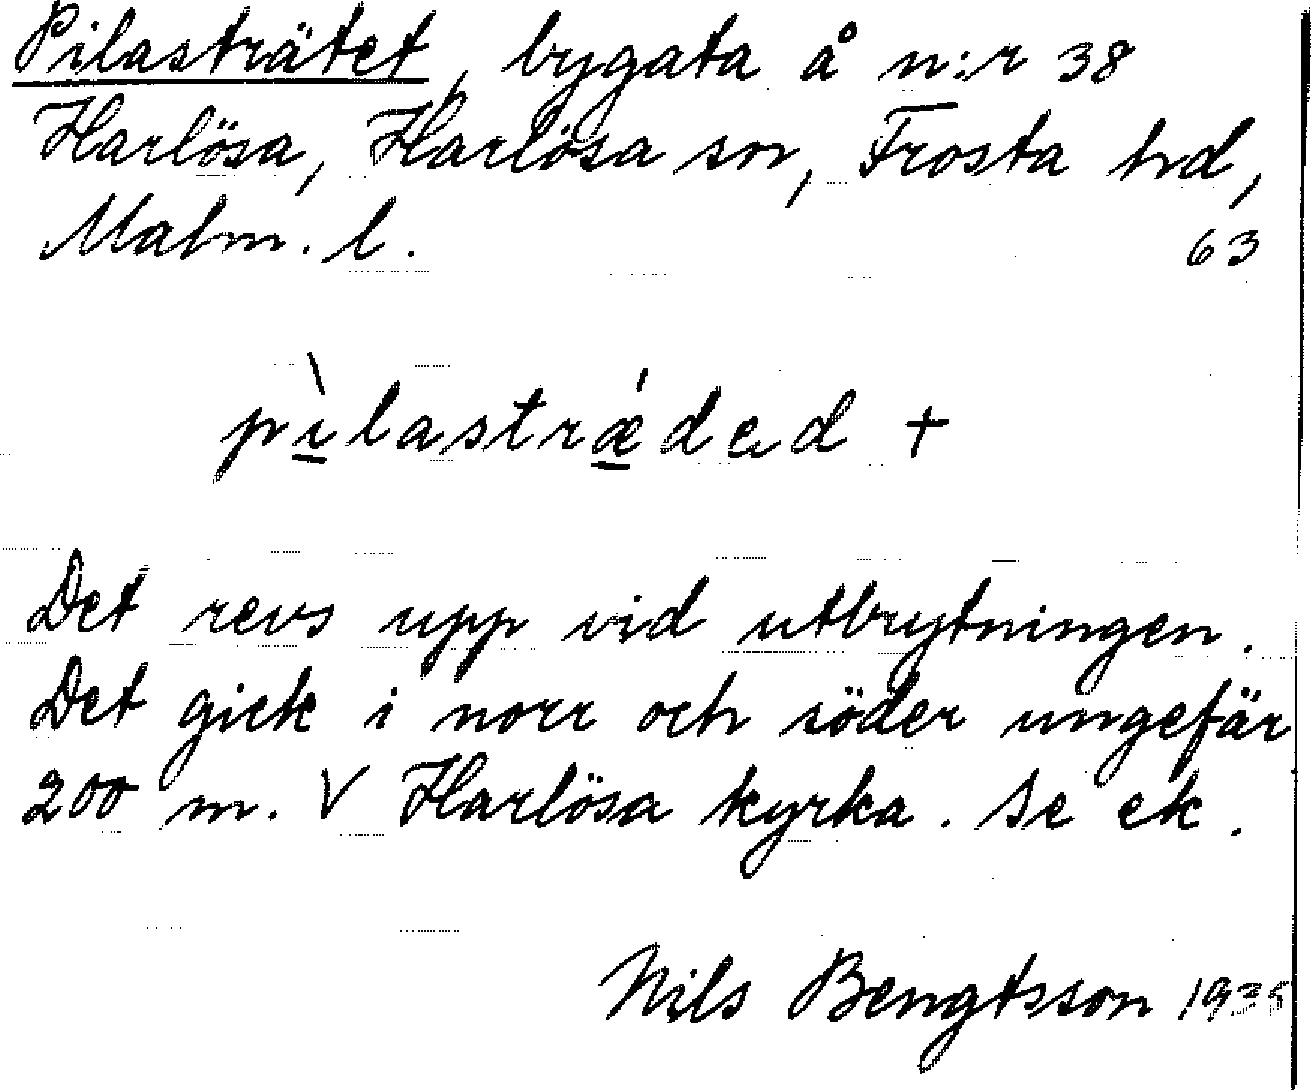 Pilasträtet, bygata å n:r 38
Harlösa, Harlösa sn, Frosta hd,
Malm. l.
63
pìlastrǽdəd +
Det revs upp vid utbrytningen.
Det gick i norr och söder ungefär
200 m. V Harlösa kyrka. Se ek.
Nils Bengtsson 1935